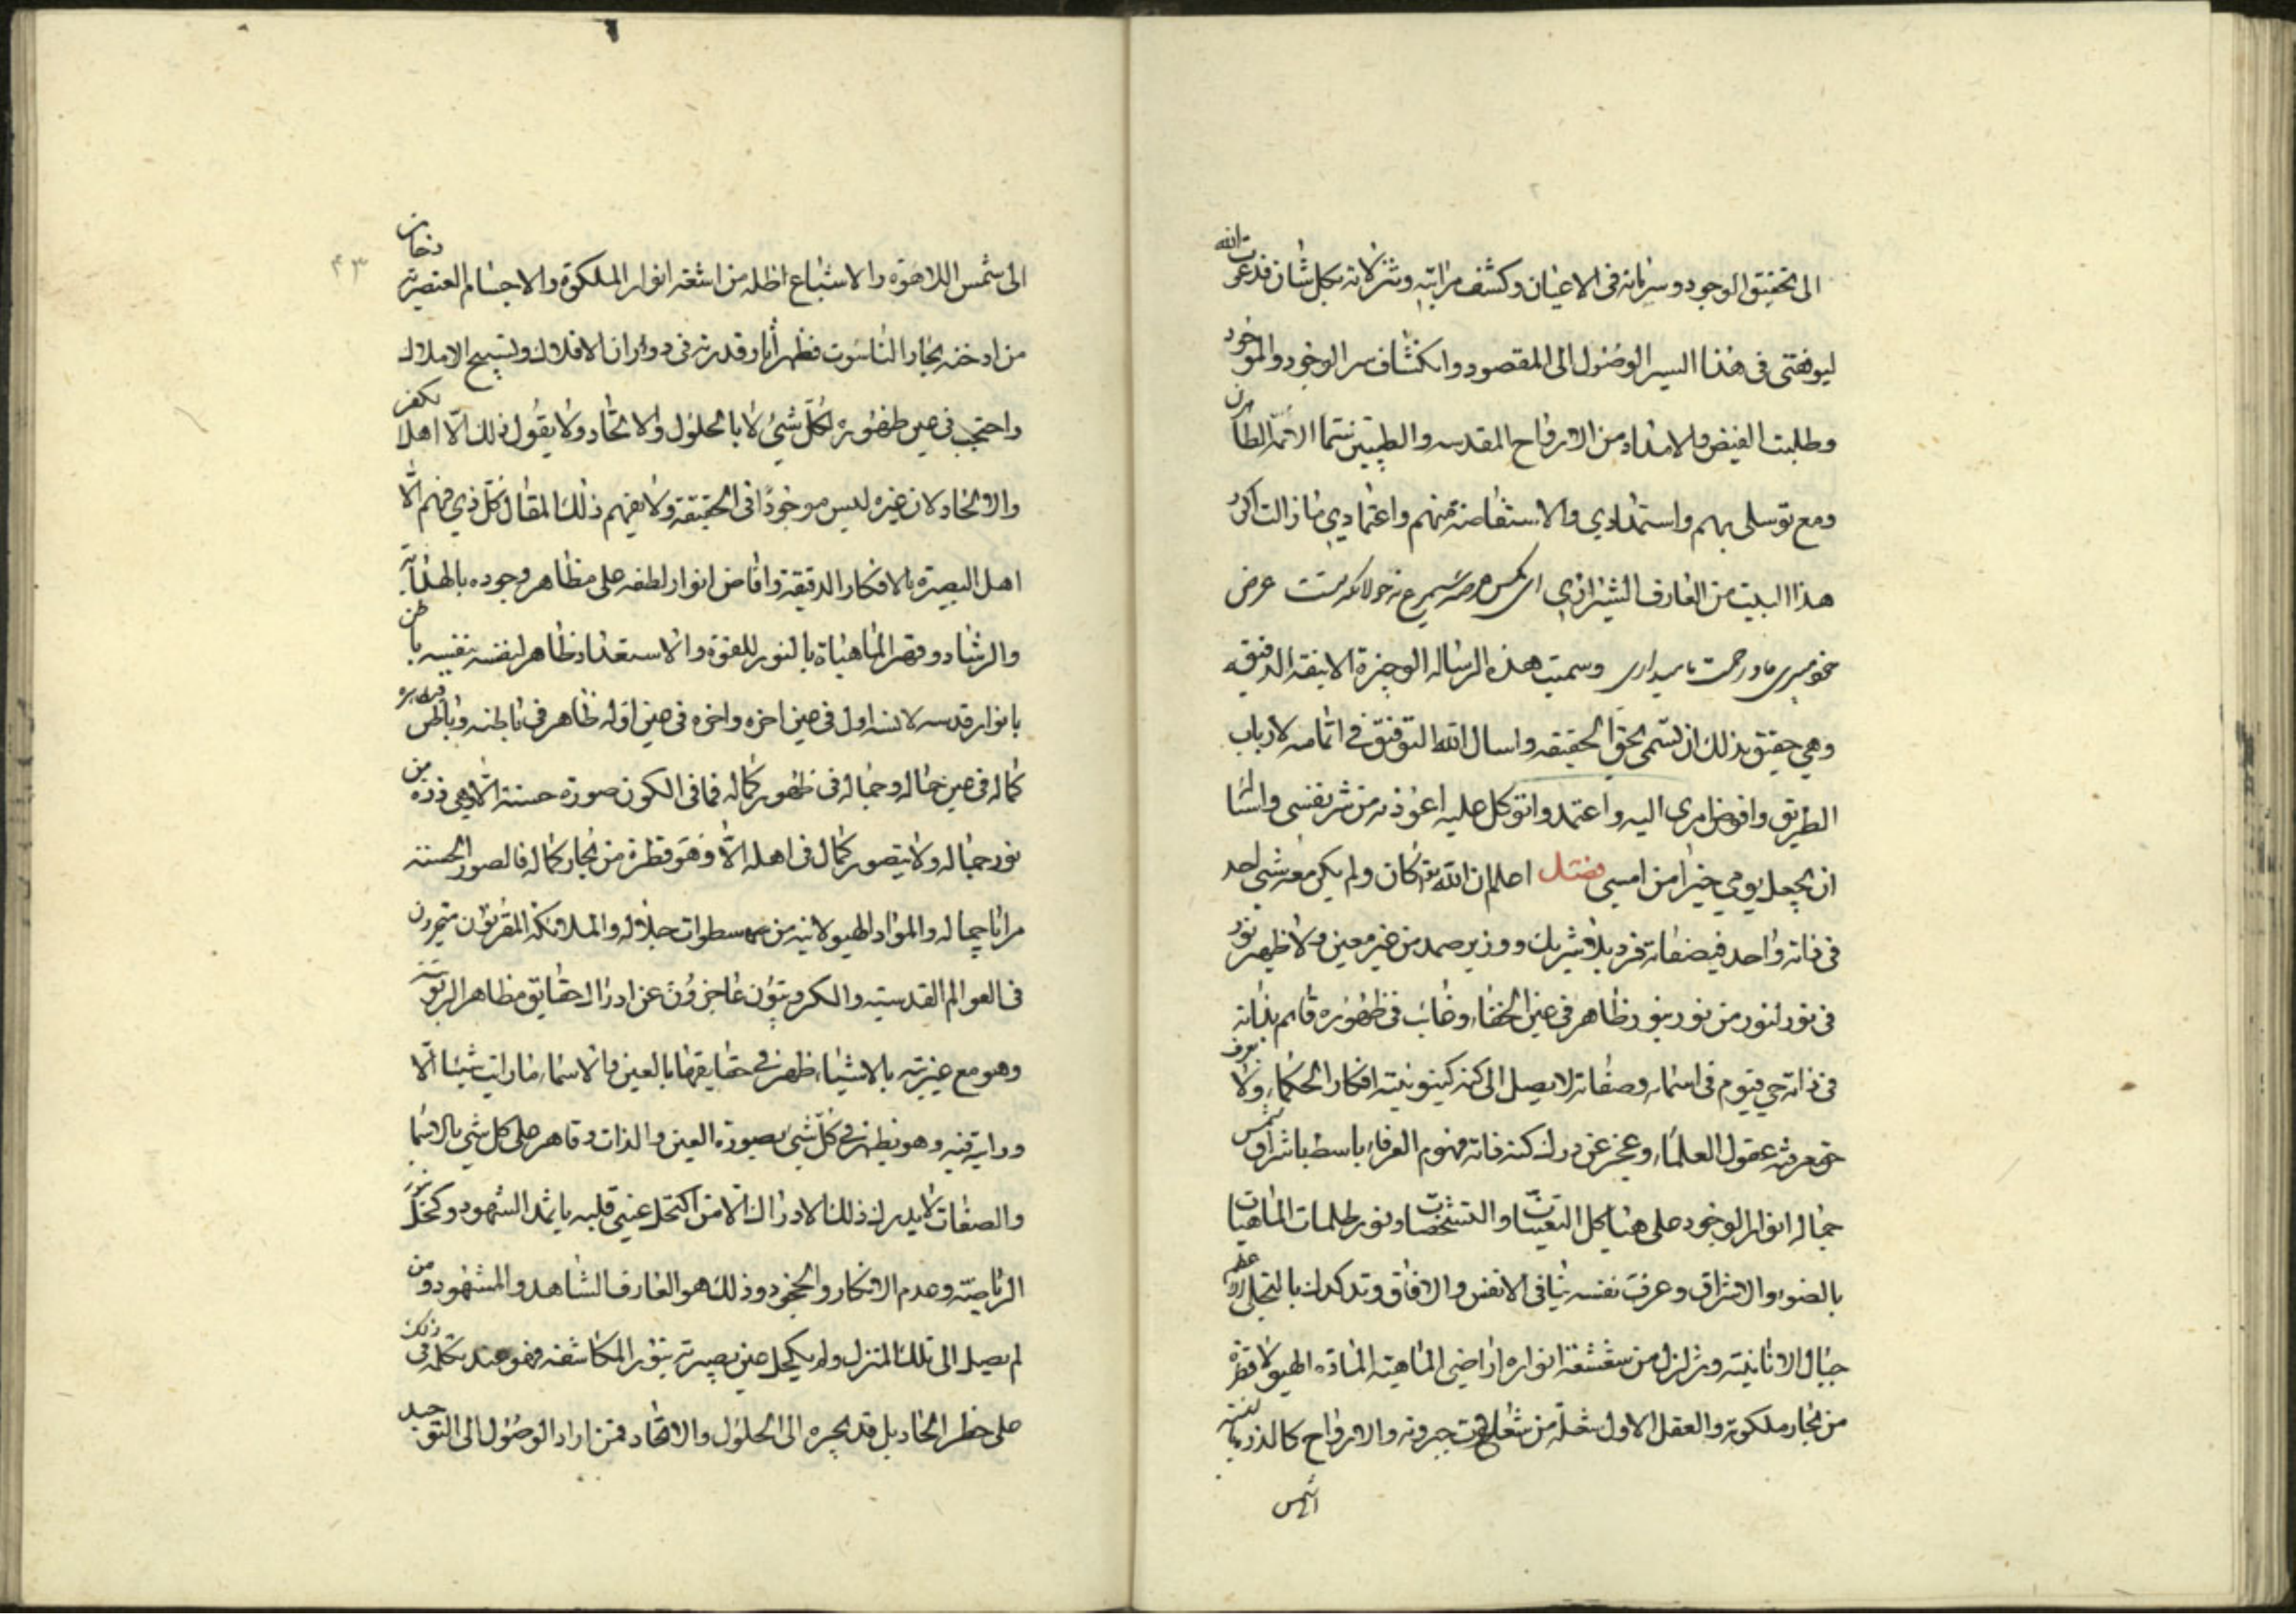 الى تحقيق الوجود وسريانه فى الاعيان وكشف مراتبه وتنزلاته بكل شان فدعوت الله
ليوفقنى فى هذا السير الوصول الى المقصود وانكشاف سر الوجود والموجود
وطلبت الفيض والامداد من الارواح المقدسه والطيبين سيما الائمه الطاهرين
ومع توسلى بهم واستمدادي والاستفاضة منهم واعتمادي ما زالت اكرر
هذا البيت من العارف الشيرازي اى مكس عرصه سيمرغ نه جولانكه تست عرض
خود ميبرى و زحمت ما ميدارى وسميت هذه الرساله الوجيزة الانيقه الدقيقه
وهي حقيق بذلك ان تسمى بحق الحقيقه واسال الله التوفيق في اتمامه لارباب
الطريق وافوض امري اليه واعتمد واتوكل عليه اعوذ به من شر نفسى واسئا
ان يجعل يومي خيرا من امسي فصل اعلم ان الله تع كان ولم يكن معه شي احد
فى ذاته واحد في صفاته فرد بلا شريك ووزير صمد من غير معين ولا ظهير نور
فى نور لنور من نور بنور ظاهر فى عين الخفاء وغائب فى ظهوره قائم بذاته
فى ذاته حي قيوم فى اسمائه وصفاته لا يصل الى كنه كينونيته افكار الحكماء ولا يعرف
حق معرفته عقول العلماء وعجز عن درك كنه ذاته فهوم العرفاء باسط باشراق شمس
جماله انوار الوجود على هياكل التعينات والتشخصات ونور ظلمات الماهيات
بالضوء والاشراق وعرف نفسه لنا فى الانفس والافاق وتدكدك بالتجلى
جبال الانانية وتزلزل من شعشعة انواره اراضي الماهية المادة الهيولا قطرة
من بحار ملكوته والعقل الاول شعلة من شعلع جبروته والارواح كالذر بالنسبة
الشمس
الى شمس اللاهوة والاشباع اظله من اشعة انوار الملكوة والاجسام العنصرية دخان
من ادخنه بحار الناسوت فظهر آثار قدرته فى دوران الافلاك وتسبيح الاملاك
واحتجب في عين ظهوره لكل شئ لا بالحلول والاتحاد ولا يقول ذلك الا اهل الكفر
والالحاد لان غيره ليس موجودا فى الحقيقة ولا يفهم ذلك المقال كل ذي فهم الا
اهل البصيرة بالافكار الدقيقة وافاض انوار لطفه على مظاهر وجوده بالهداية
والرشاد وقهر الماهيات بالنور للقوة والاستعداد ظاهر لنفسه بنفسه باطن
بانوار قدسه لانه اول فى عين اخره واخره فى عين اوله ظاهر فى باطنه وباطن فى ظاهره
كماله فى عين جماله وجماله فى ظهور كماله فما فى الكون صورة حسنة الا وهي ذرة من
نور جماله ولا يتصور كمال فى اهله الا وهو قطرة من بحار كماله فالصور الحسنة
مرايا جماله والمواد الهيولانيه من سطوات جلاله والملائكة المقربون متحيرون
فى العوالم القدسيته والكروبيون عاجزون عن ادراك حقايق مظاهر الربوبية
وهو مع غيريته بالاشياء ظهر في حقايقها بالعين والاسماء ما رايت شيئا الا
ورايته فيه وهو يظهر في كل شئ بصورة العين والذات وقاهر على كل شي بالاسما
والصفات لا يدرك ذلك الادراك الا من اكتحل عيني قلبه باثمد الشهود وكحل نور
الرياضة وعدم الانكار والجحود وذلك هو العارف الشاهد والمشهود ومن
لم يصل الى تلك المنزل ولم يكحل عين بصيرته بنور المكاشفه فهو عند تكلمه فى ذلك
على خطر الحاد بل قد يجره الى الحلول والاتحاد فمن اراد الوصول الى التوحيد